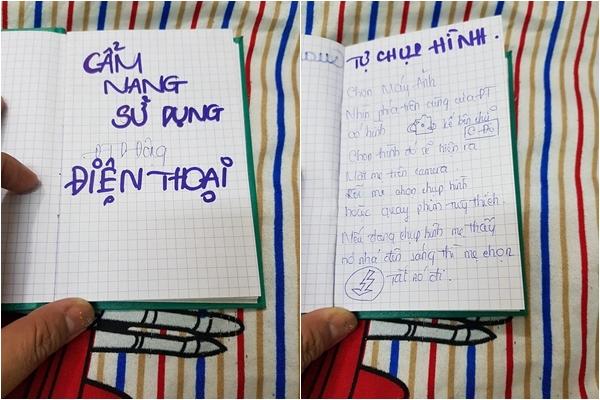 CẨM
NANG
SỬ DỤNG
ĐTD Động
ĐIỆN THOẠI
TỰ CHỤP HÌNH.
Chọn Máy Ảnh
Nhìn phía trên cùng của ĐT
có hình kế bên chữ
Chọn hình đó sẽ hiện ra
Mặt mẹ trên camera
mẹ chọn chụp hình
hoặc quay phim tùy thích.
Nếu đang chụp hình mẹ thấy
nó nhá đèn sáng thì mẹ chọn
Tắt nó đi.